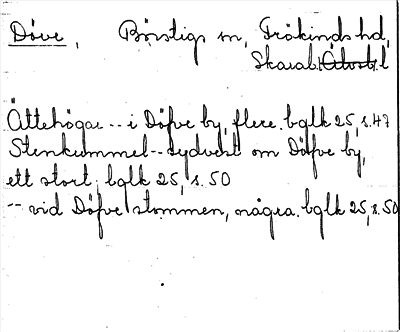 Döve, Börstigs sn, Fräkinds hd,
Skarab. l
Ättehögar -- i Döfve by, flere. bglk 25, s. 47
Stenkummel -- sydvest om Döfve by,
ett stort. bglk 25, s. 50
-- vid Döfve stommen, några. bglk 25, s. 50